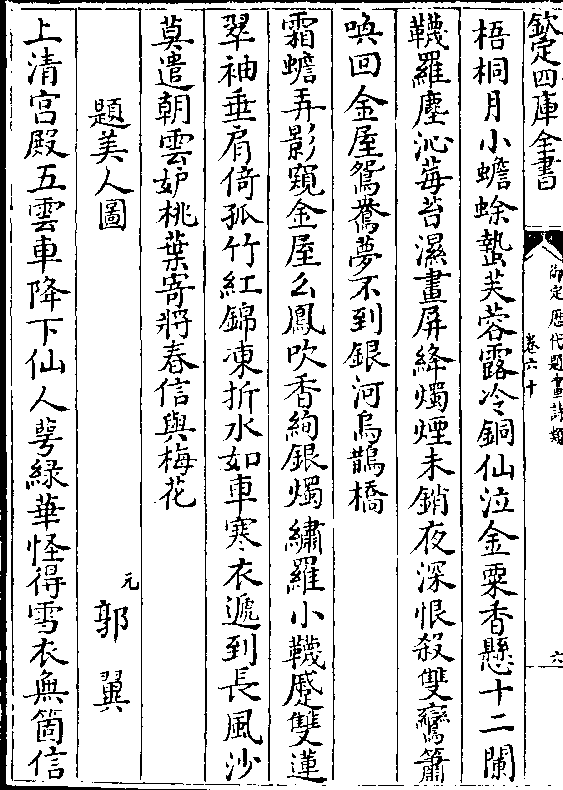 欽定四庫全書
御定歴代題畫詩類
卷六十
六
梧桐月小蟾蜍蟄芙蓉露冷銅仙泣金粟香懸十二闌
韈羅塵沁莓苔濕畫屏絳燭煙未銷夜深恨殺雙鸞簫
喚回金屋鴛鴦夢不到銀河烏鵲橋
霜蟾弄影窺金屋么鳳吹香絢銀燭繡羅小韈蹙雙蓮
翠袖垂肩倚孤竹紅錦凍折水如車寒衣遞到長風沙
莫遣朝雲妒桃葉寄將春信與梅花
題美人圖
元
郭翼
上清宫殿五雲車降下仙人萼緑華怪得雪衣無箇信